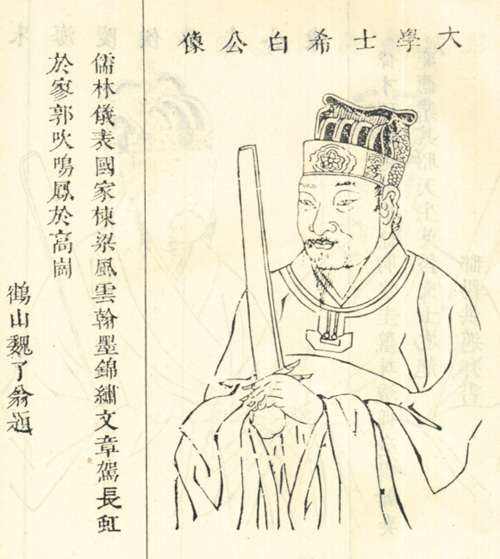 大學士希白公像
儒林儀表國家棟梁風雲翰墨錦繡文章駕長虹
於寥郭吹鳴鳳於高崗
鶴山魏了翁題